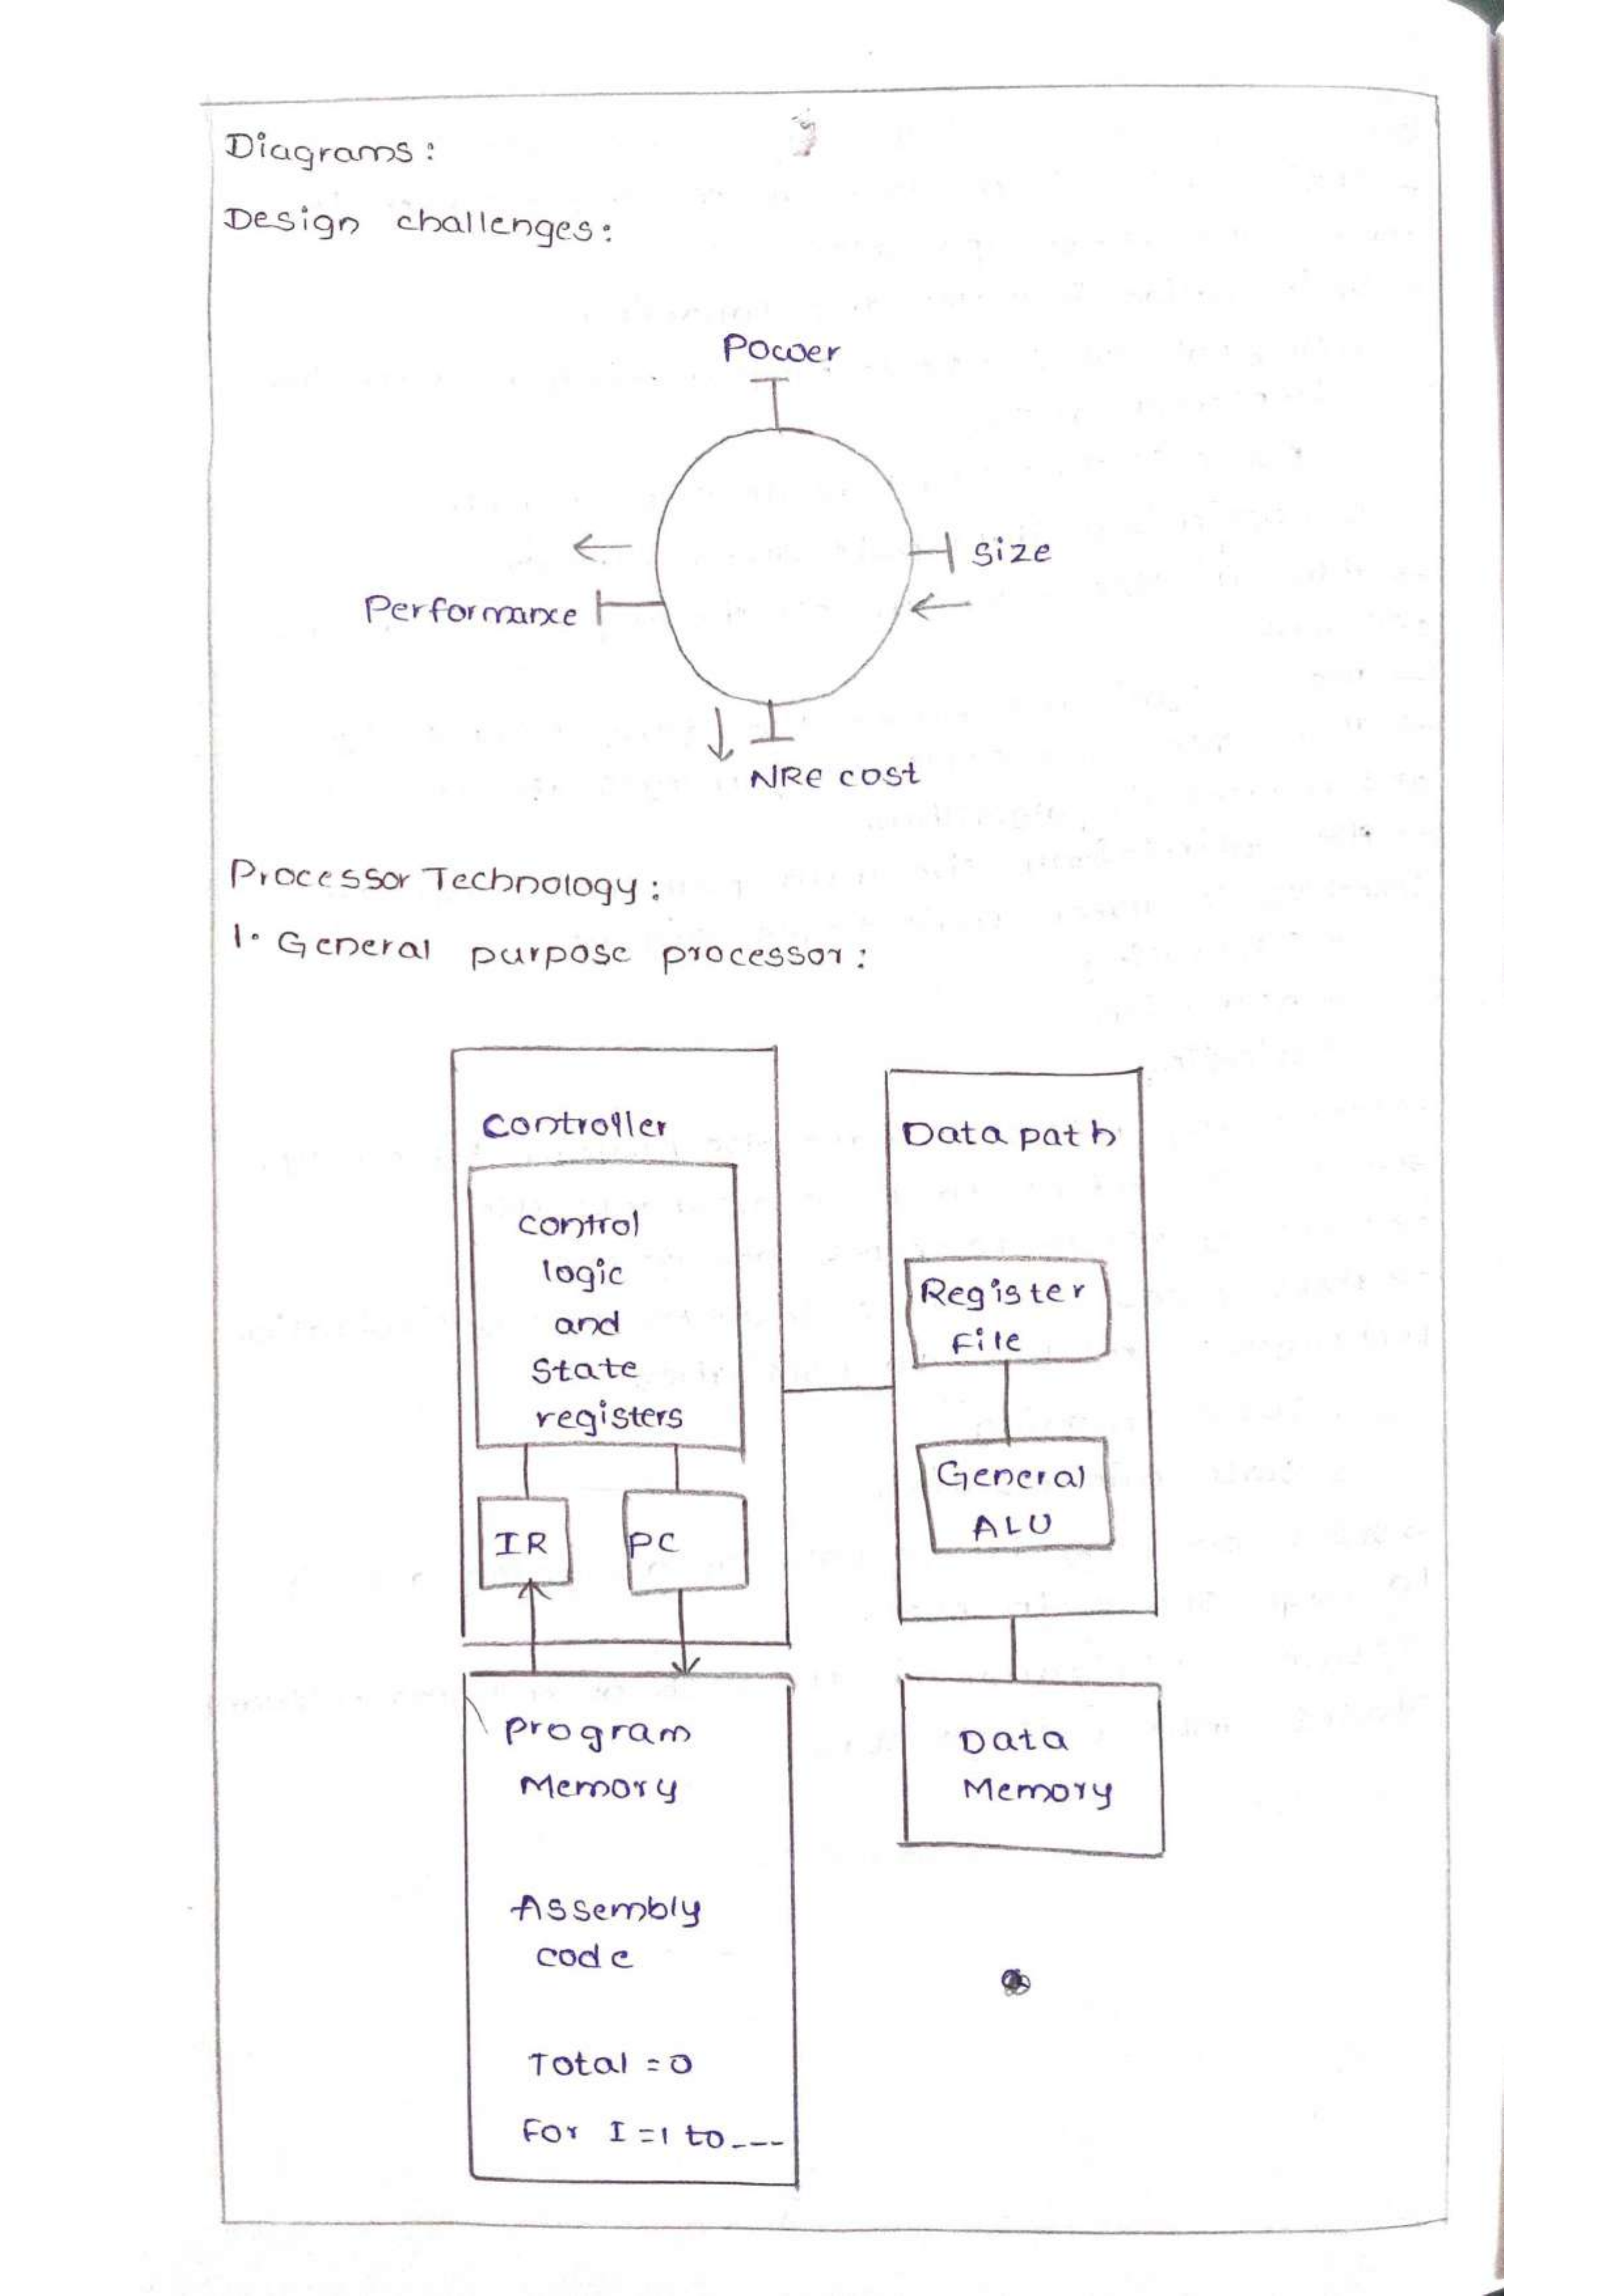 Diagrams:
Design challenges:
Power
Size
Performance
NRE cost
Processor Technology:
1. General purpose processor:
Controller
control
logic
and
State
registers
IR
PC
Data path
Register
File
General
ALU
Program
Memory
Assembly
code
Total = 0
For I = 1 to ---
Data
Memory